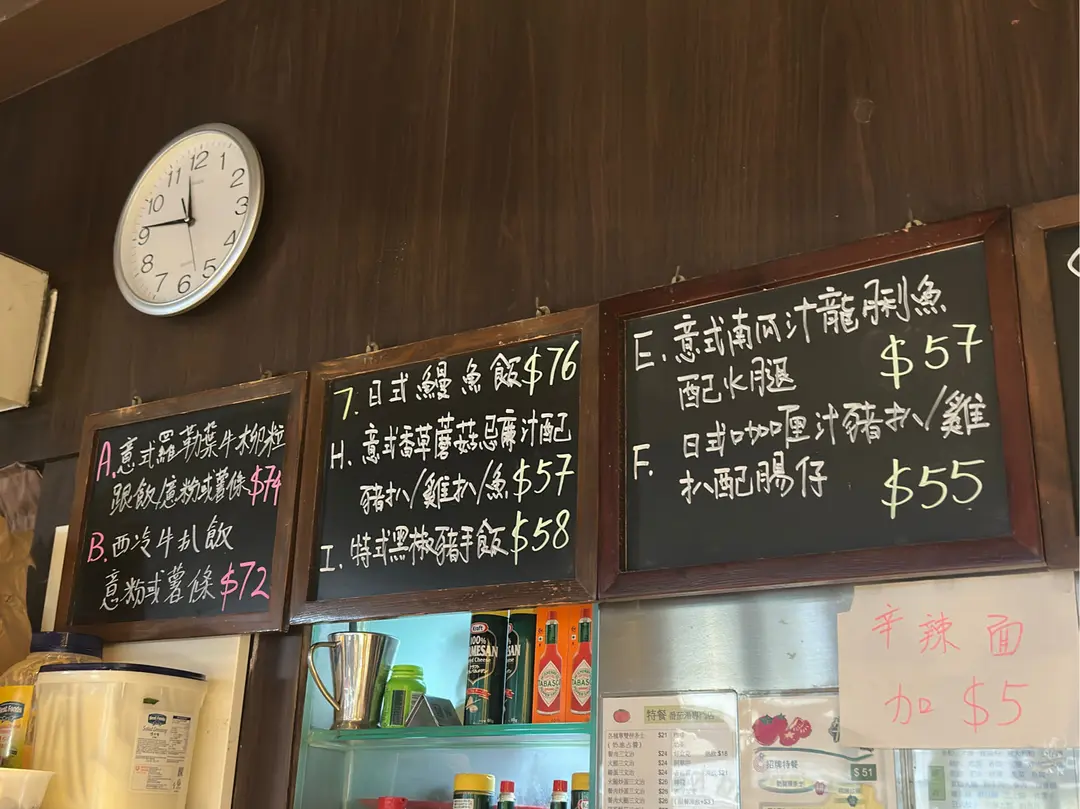 12
1
2
3
4
5
6
7
8
9
10
11
A. 意式羅勒葉牛柳粒
跟飯/意粉或薯條 $74
B. 西冷牛扒飯
意粉或薯條 $72
7. 日式鰻魚飯 $76
H. 意式香草蘑菇忌廉汁配
豬扒/雞扒/魚 $57
I. 特式黑椒豬手飯 $58
E. 意式南瓜汁龍脷魚
配火腿 $57
F. 日式咖喱汁豬扒/雞
扒配腸仔 $55
辛辣面
加 $5
Kraft
100%
Best Foods
TABASCO
特餐
$21
$24
$24
$24
招牌特餐
$51